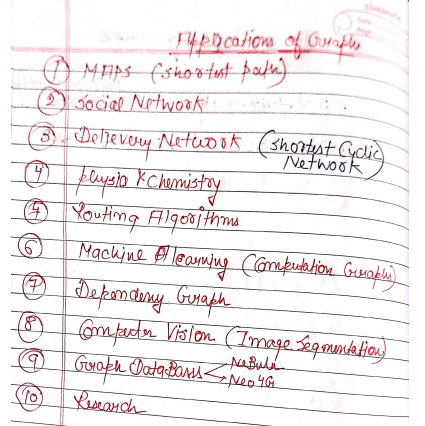 Applications of Graphs
① MAPS (shortest path)
② Social Network
③ Delievery Network (shortest Cyclic
Network)
④ physio & Chemistry
⑤ Routing Algorithms
⑥ Machine learning (Computation Graphs)
⑦ Dependeny Graph
⑧ Computer Vision (Image Segmentation)
⑨ Graph DataBases NeBula
Neo4G
⑩ Research